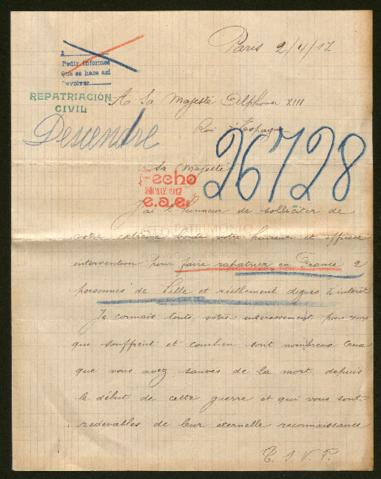 Paris 2/4/17
A
Pedir informes
Que se hace así
Devolver
REPATRIACIÓN
CIVIL
A Sa Majesté Alphonse XIII
Roi d'Espagne
Descendre
26728
Sa Majesté
Hecho
1917
J'ai l'honneur de solliciter de
votre extrême bonté votre et efficace
intervention pour faire rapatrier en France 2
personnes de Lille et réellement dignes d'intérêt
Je connais toute votre pour ceux
que souffrent et combien sont nombreux ceux
que vous avez sauvés de la mort depuis
le début de cette guerre et qui vous sont
redevables de leur éternelle reconnaissance
T. S. V. P.